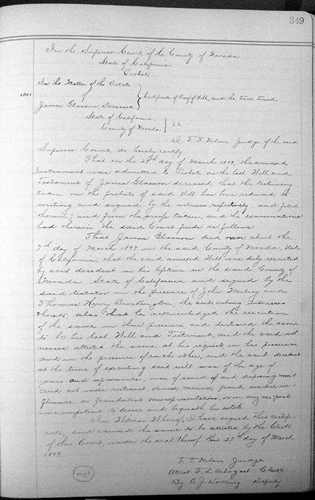 349
In the Superior Court of the County of Nevada
State of California
Probate
In the Matter of the Estate
of
James Glasson Deceased
Certificate of Proof of Will, and the Facts Found.
State of California
County of Nevada
ss
I. F. T. Nilon, Judge of the said
Superior Court, do hereby certify
That on the 27th day of March 1899, the annexed
Instrument was admitted to Probate as the last Will and
Testament of James Glasson deceased, that the testimony
taken in the probate of said Will has been reduced to
writing and signed by the witness respectively, and filed
herein; and from the proofs taken, and the examinations
had therein the said Court finds as follows:
That James Glasson died on or about the
7th day of March 1899 in the said County of Nevada, State
of California that the said annexed Will was duly executed
by said decedent in his lifetime in the said County of
Nevada, State of California and signed by the
said testator in the presence of John and
Thomas Henry the subscribing witnesses
thereto, also that he acknowledged the execution
of the same in their presence and declared the same
to be his last Will and Testament, and the said wit-
nesses attested the same at his request in his presence
and in the presence of each other, and the said decedent
at the time of executing said will was of the age of
years and upwards, was of sound and disposing mind
and not under restraint, undue menace, fraud, undue in-
fluence, or fraudulent misrepresentation, nor in any respect
incompetent to devise and bequeath his estate.
In Witness Whereof, I have signed this certifi-
cate, and caused the same to be attested by the Clerk
of this Court, under the seal thereof this 27th day of March
1899.
F. T. Nilon Judge
Attest F. L. Arbogast Clerk
By Deputy
seal